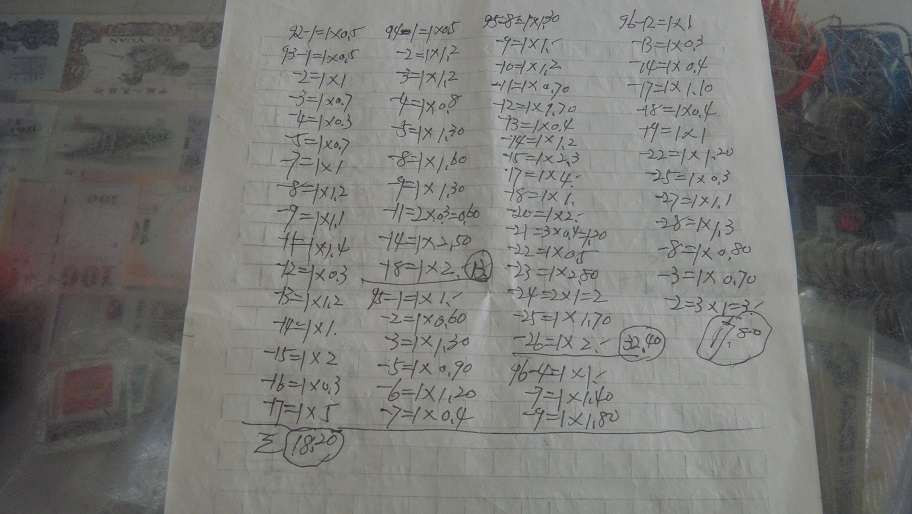 92-1=1×0.5
93-1=1×0.5
-2=1×1
-3=1×0.7
-4=1×0.3
-5=1×0.7
-7=1×1
-8=1×1.2
-9=1×1.1
-11=1×1.4
-12=1×0.3
-13=1×1.2
-14=1×1.
-15=1×2
-16=1×0.3
-17=1×5
Σ 18.20
94-1=1×0.5
-2=1×1.2
-3=1×1.2
-4=1×0.8
-5=1×1.30
-8=1×1.60
-9=1×1.30
-11=2×0.3=0.60
-14=1×2.50
-18=1×2. 13
95-1=1×1.-
-2=1×0.60
-3=1×1.30
-5=1×0.90
-6=1×1.20
-7=1×0.4
95-8=1×1.30
-9=1×1.-
-10=1×1.2
-11=1×0.70
-12=1×1.70
-13=1×0.4
-14=1×1.2
-15=1×2.3
-17=1×4.-
-18=1×1.
-20=1×2.-
-21=3×0.4=1.20
-22=1×0.5
-23=1×2.80
-24=2×1=2
-25=1×1.70
-26=1×2.- 32.40
96-4=1×1.-
-7=1×1.40
-9=1×1.80
96-12=1×1
-13=1×0.3
-14=1×0.4
-17=1×1.10
-18=1×0.4
-19=1×1
-22=1×1.20
-25=1×0.3
-27=1×1.1
-28=1×1.3
-8=1×0.80
-3=1×0.70
-2=3×1=3.-
100